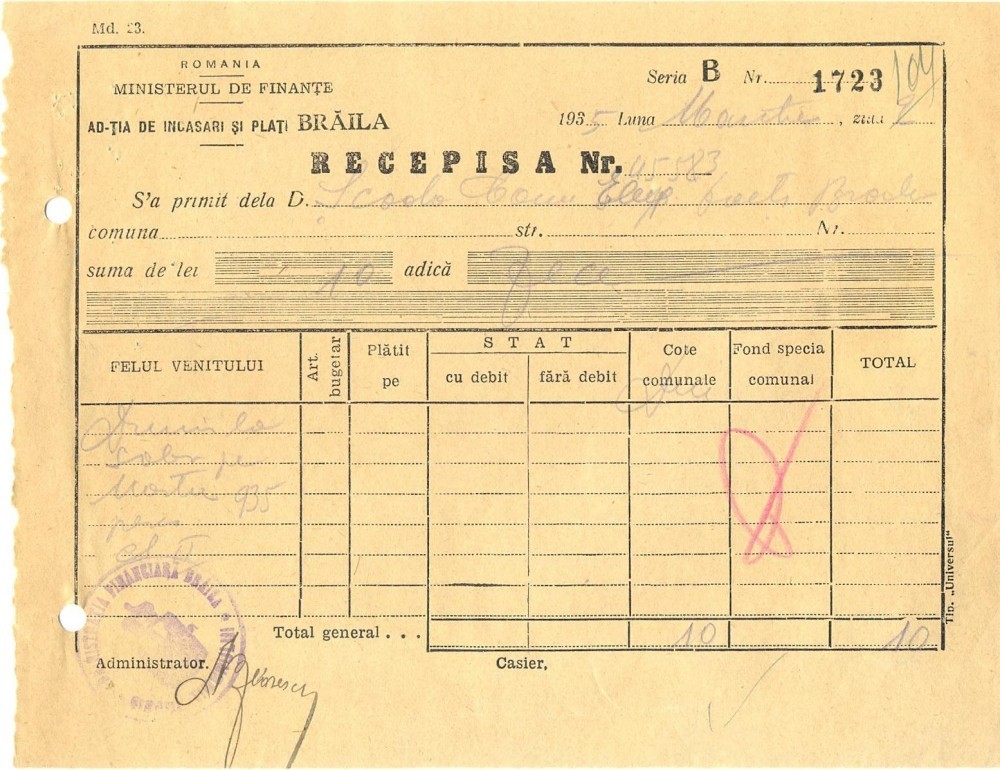 Md. 23.
ROMANIA
MINISTERUL DE FINANȚE
AD-ȚIA DE INCASARI ȘI PLAȚI BRĂILA
Seria B Nr. 1723
104
1935 Luna Martie, ziua 2
RECEPISA Nr. 45583
S'a primit dela D. Scoala Com
comuna str. Nr.
suma de lei 10 adică Zece
FELUL VENITULUI
Art. bugetar
Plătit pe
STAT
cu debit
fără debit
Cote comunale
Fond specia comunal
TOTAL
la
pe
Martie 935
Total general . . . 10 10
Administrator.
Casier,
Tip. „Universul"
FINANCIARĂ BRAILA